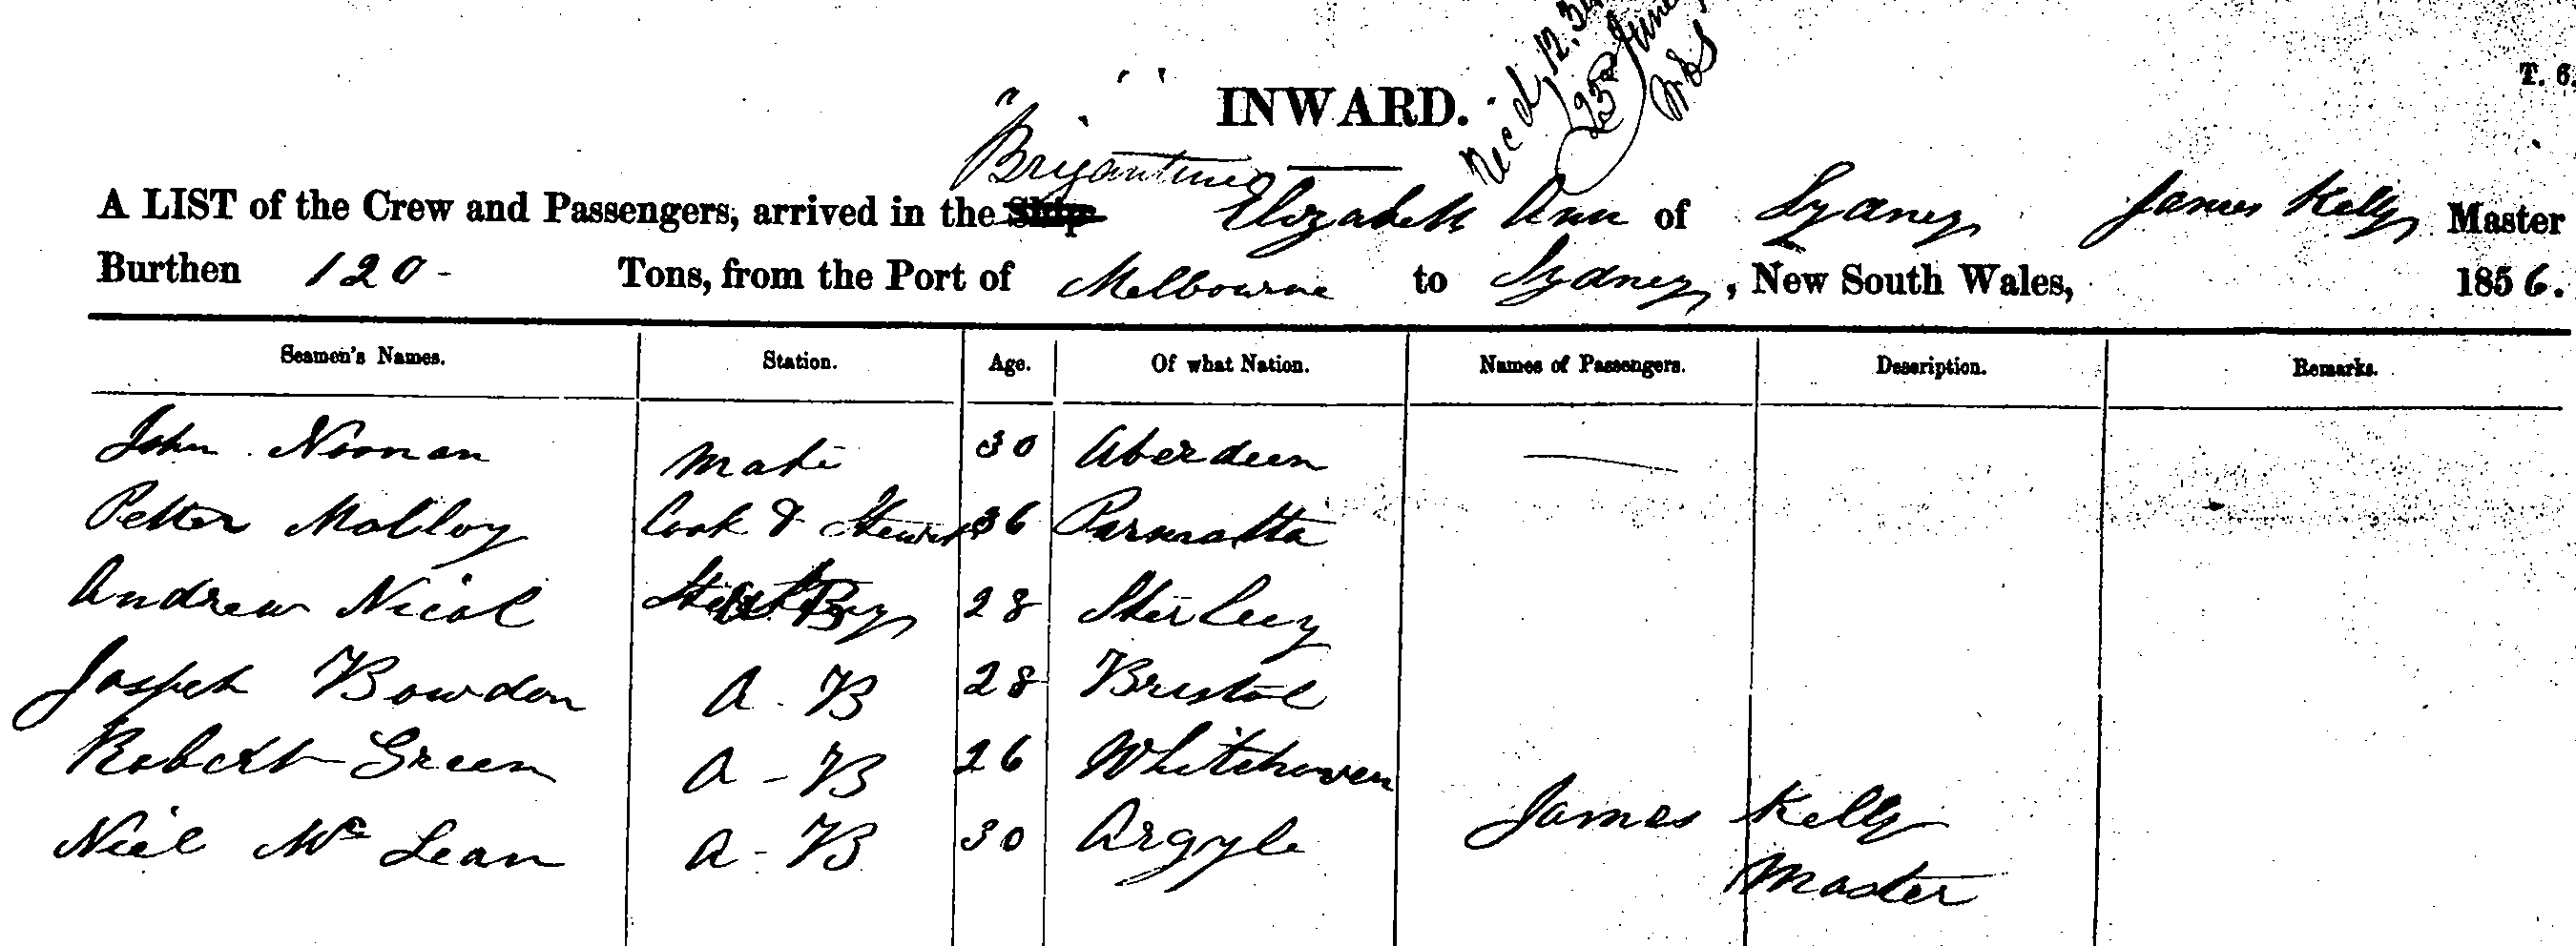 T. 6.
Rec'd 12.
23rd June
INWARD.
"Brigantine"
A LIST of the Crew and Passengers, arrived in the Ship Elizabeth Ann of Sydney James Kelly Master
Burthen 120- Tons, from the Port of Melbourne to Sydney, New South Wales, 1856.
Seamen's Names. Station. Age. Of what Nation. Names of Passengers. Description. Remarks.
John Noonan Mate 30 Aberdeen
Petter Molloy Cook & Steward 36 Parmatta
Andrew Nicol A B 28 Sterling
Jospeh Bowdon A. B 28 Bristol
Robert Green A - B 26 Whitehaven
Niel Mc Lean A - B 30 Argyle
James Kelly
Master